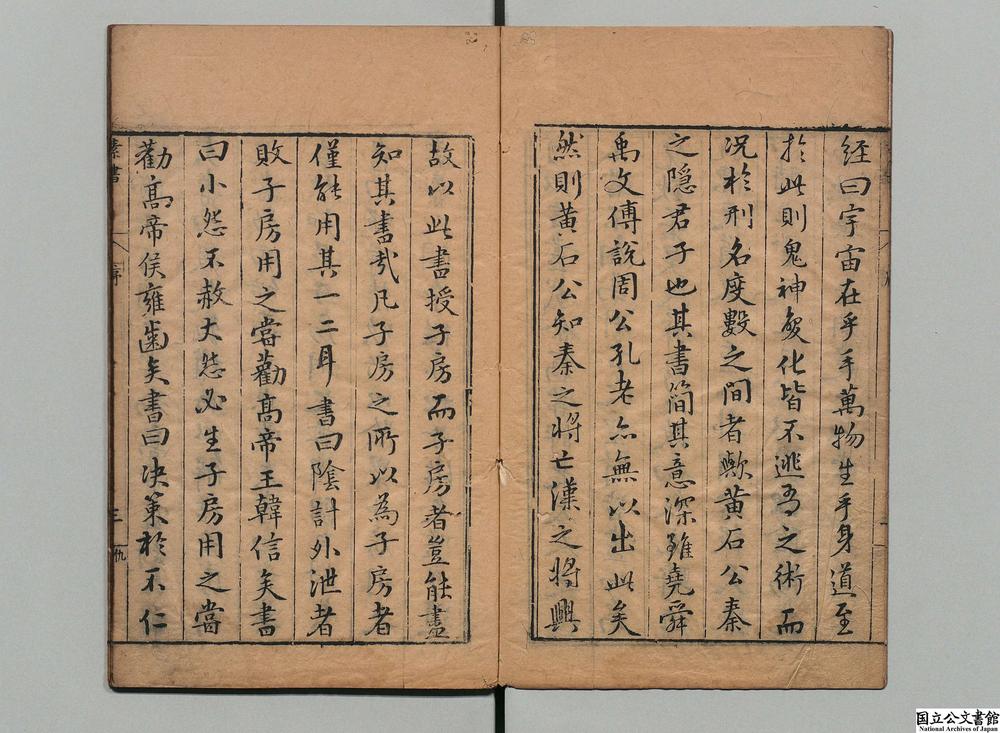 經曰宇宙在乎手萬物生乎身道至
扵此則鬼神變化皆不逃吾之術而
况扵刑名度數之間者歟黄石公秦
之隱君子也其書簡其意深雖堯舜
禹文傅說周公孔老亦無以出此矣
然則黄石公知秦之將亡漢之將興
故以此書授子房而子房者豈能盡
知其書哉凡子房之所以為子房者
僅能用其一二耳書曰陰計外泄者
敗子房用之嘗勸髙帝王韓信矣書
曰小怨不赦大怨必生子房用之嘗
勸髙帝侯雍齒矣書曰决策於不仁
素書
序
三
仇
国立公文書館
National Archives of Japan